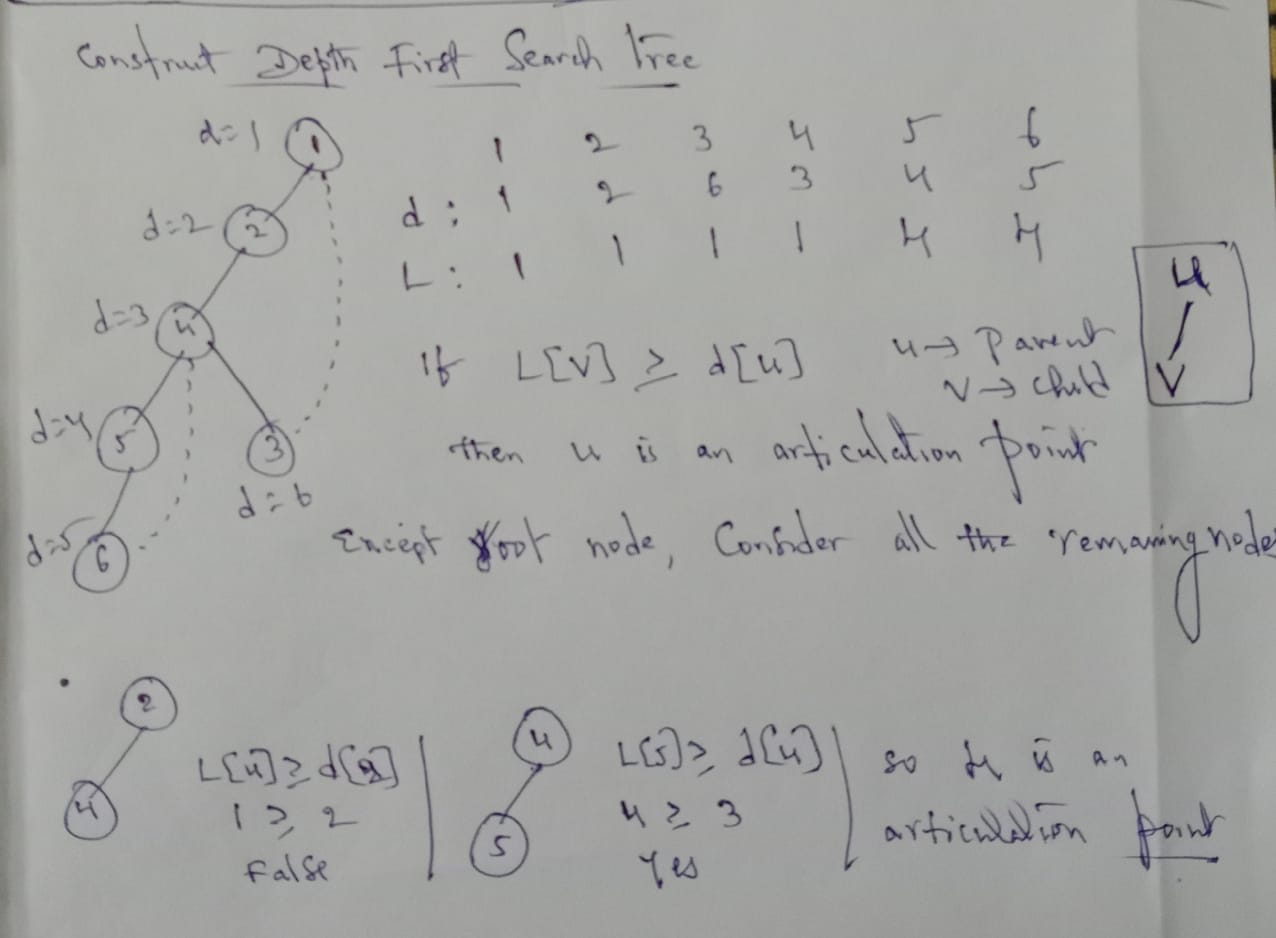 Construct Depth First Search Tree
d=1 1
1 2 3 4 5 6
d=2 2
d : 1 2 6 3 4 5
L : 1 1 1 1 4 4
d=3 4
u
v
If L[v] ≥ d[u] u → Parent
v → child
d=4 5 3
then u is an articulation point
d=6
d=5 6
Except root node, Consider all the remaining nodes
2
4
L[4] ≥ d[2]
1 ≥ 2
False
4
5
L[5] ≥ d[4]
4 ≥ 3
Yes
so 4 is an
articulation point